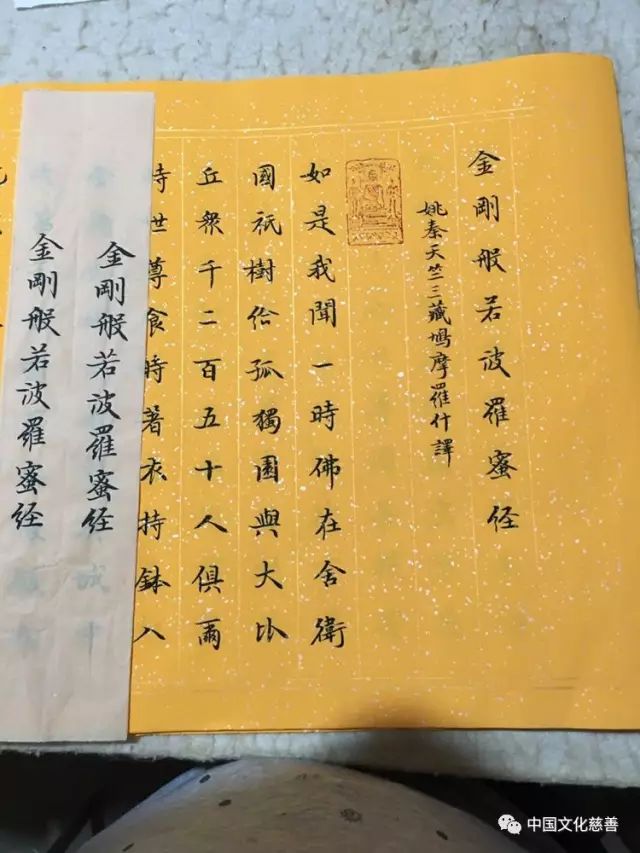 金剛般若波羅蜜经
姚秦天竺三藏鳩摩羅什譯
如是我聞一時佛在舍衛
國祇樹給孤獨園與大比
丘衆千二百五十人俱爾
時世尊食時著衣持鉢入
金剛般若波羅蜜经
金剛般若波羅蜜经
中国文化慈善